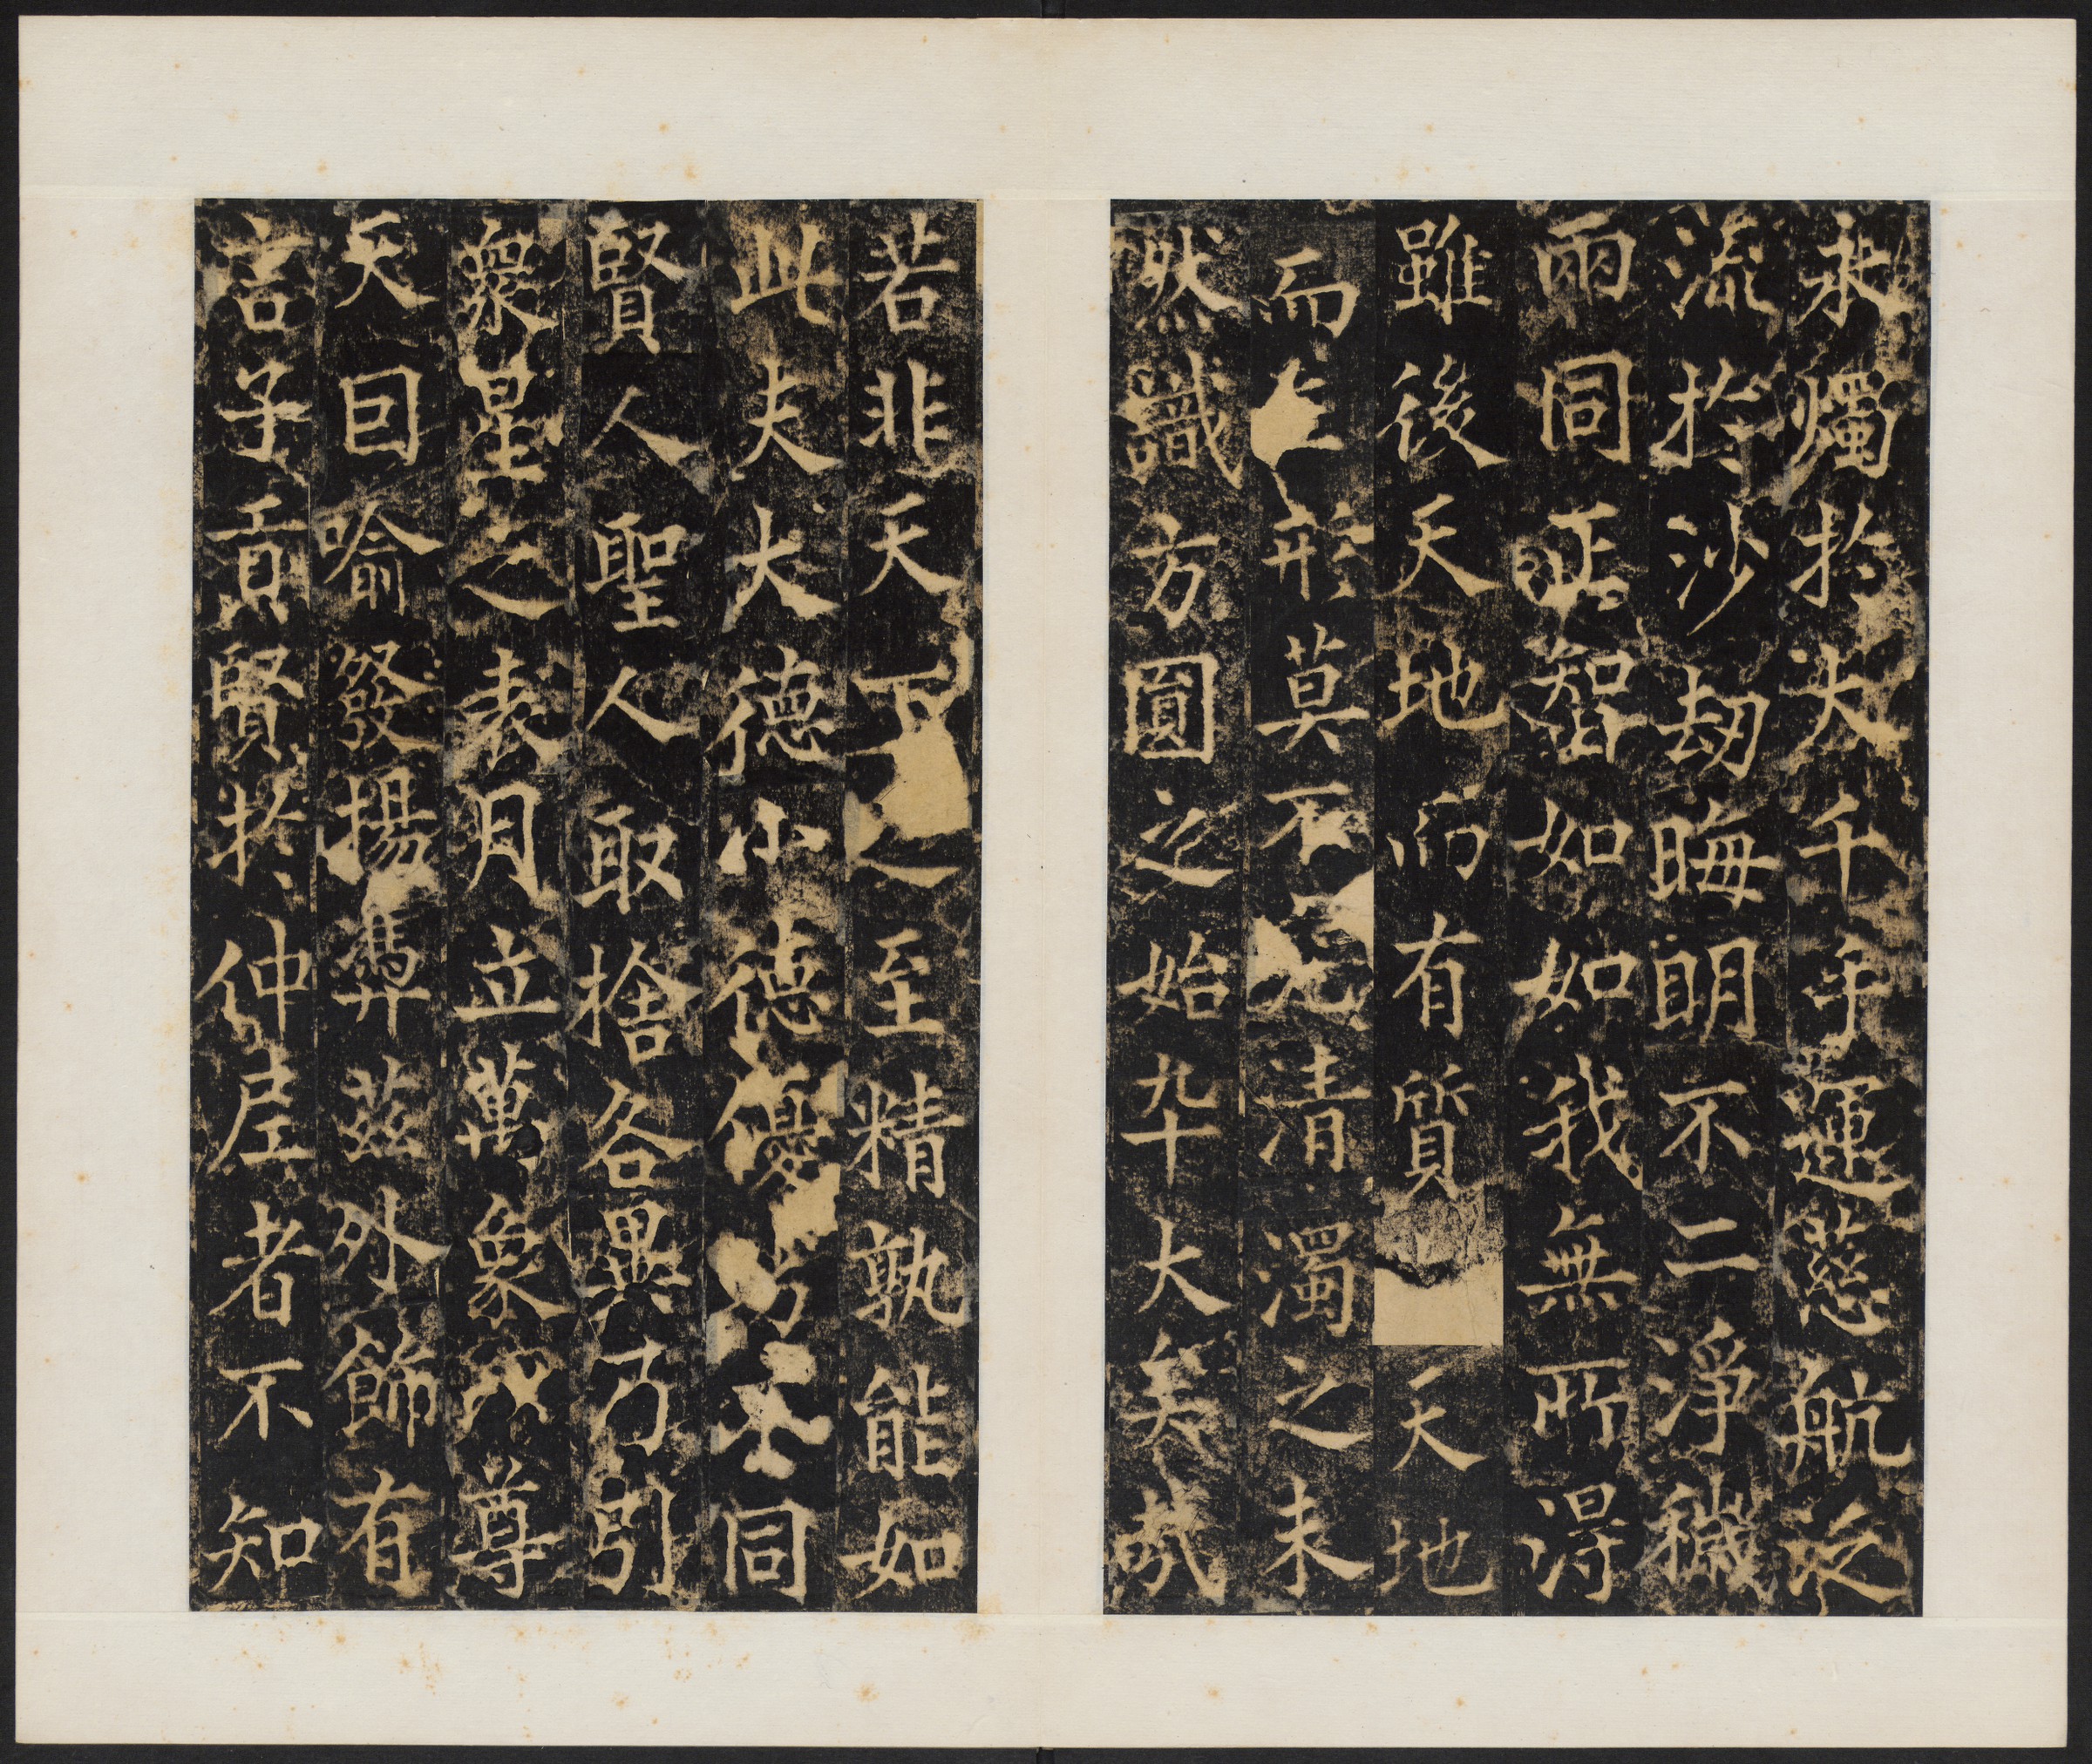 永燭於大千手運慈航泛
流於沙劫晦明不二淨穢
兩同正智如如我無所得
雖後天地而有質天地
而生形莫不元清濁之未
然識方圓之始卆大矣哉
若非天下之至精孰能如
此夫大德小德優劣不同
賢人聖人取捨各異乃引
衆星之表月立萬象以尊
天囙喻發揚茲外飾有
言子貢賢於仲尼者不知